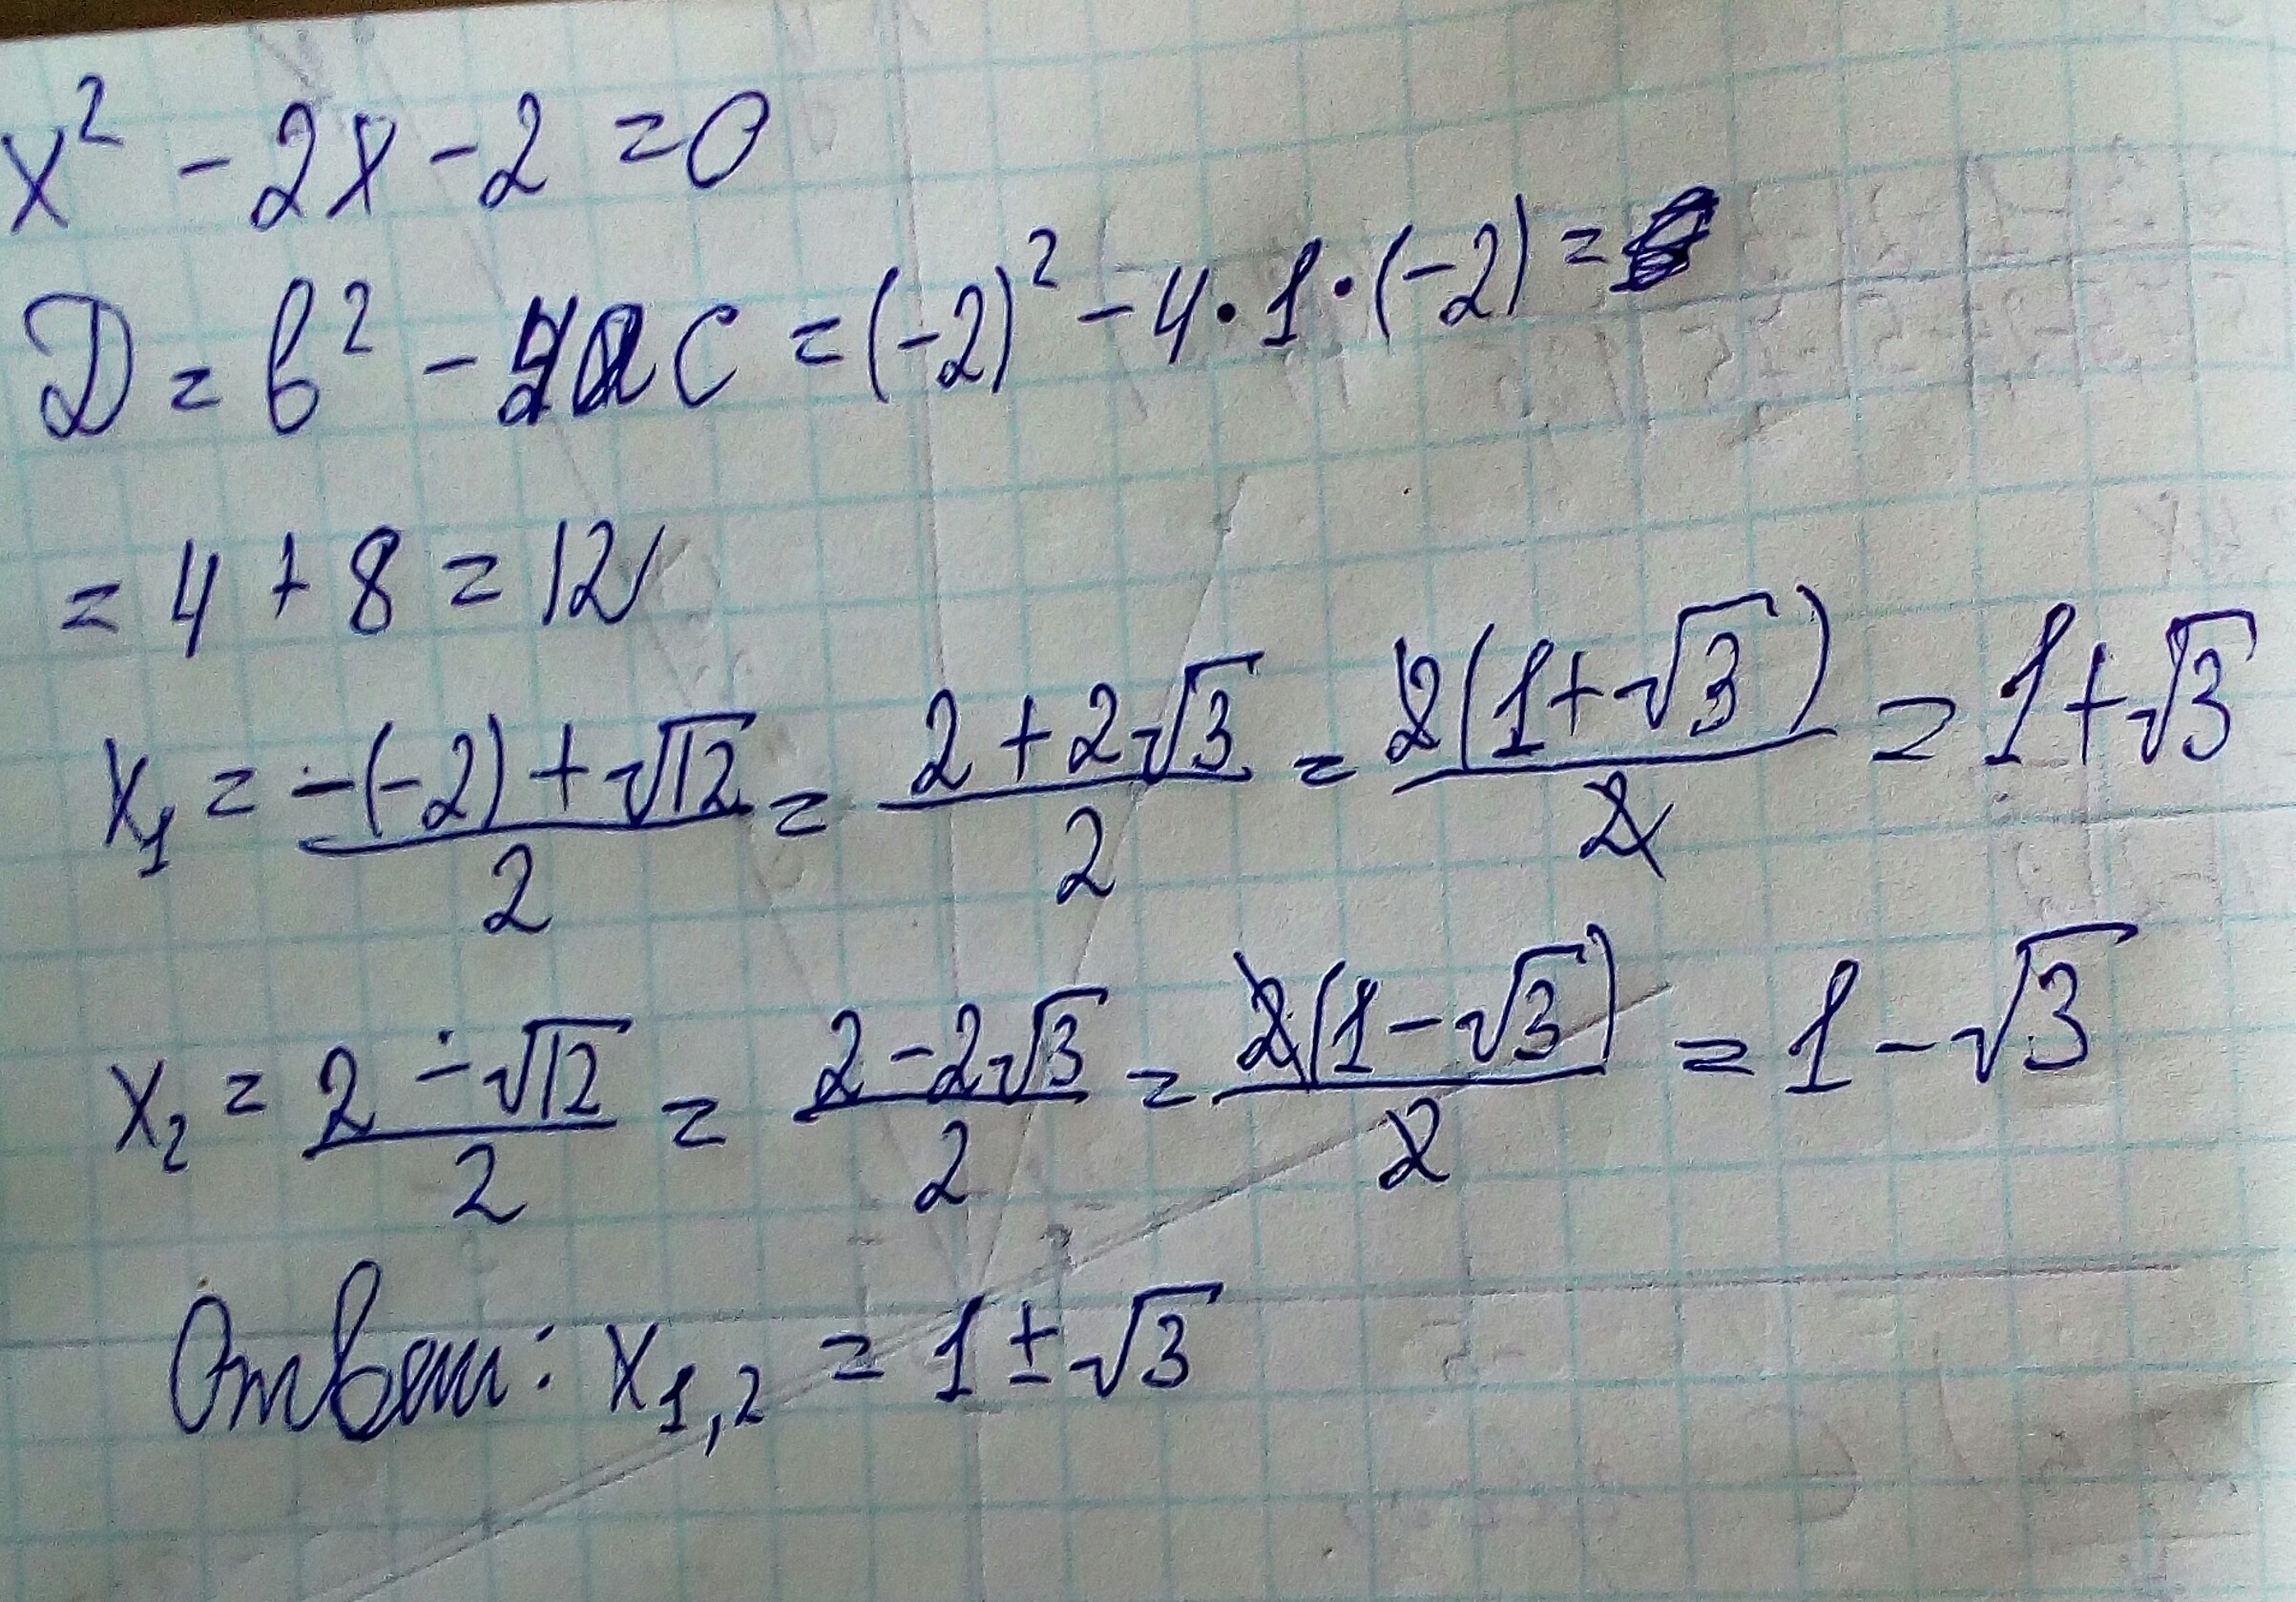 x² - 2x - 2 = 0
D = b² - 4ac = (-2)² - 4·1·(-2) =
= 4 + 8 = 12
x₁ = (-(-2) + √12)/2 = (2 + 2√3)/2 = 2(1 + √3)/2 = 1 + √3
x₂ = (2 - √12)/2 = (2 - 2√3)/2 = 2(1 - √3)/2 = 1 - √3
Ответ: x₁,₂ = 1 ± √3